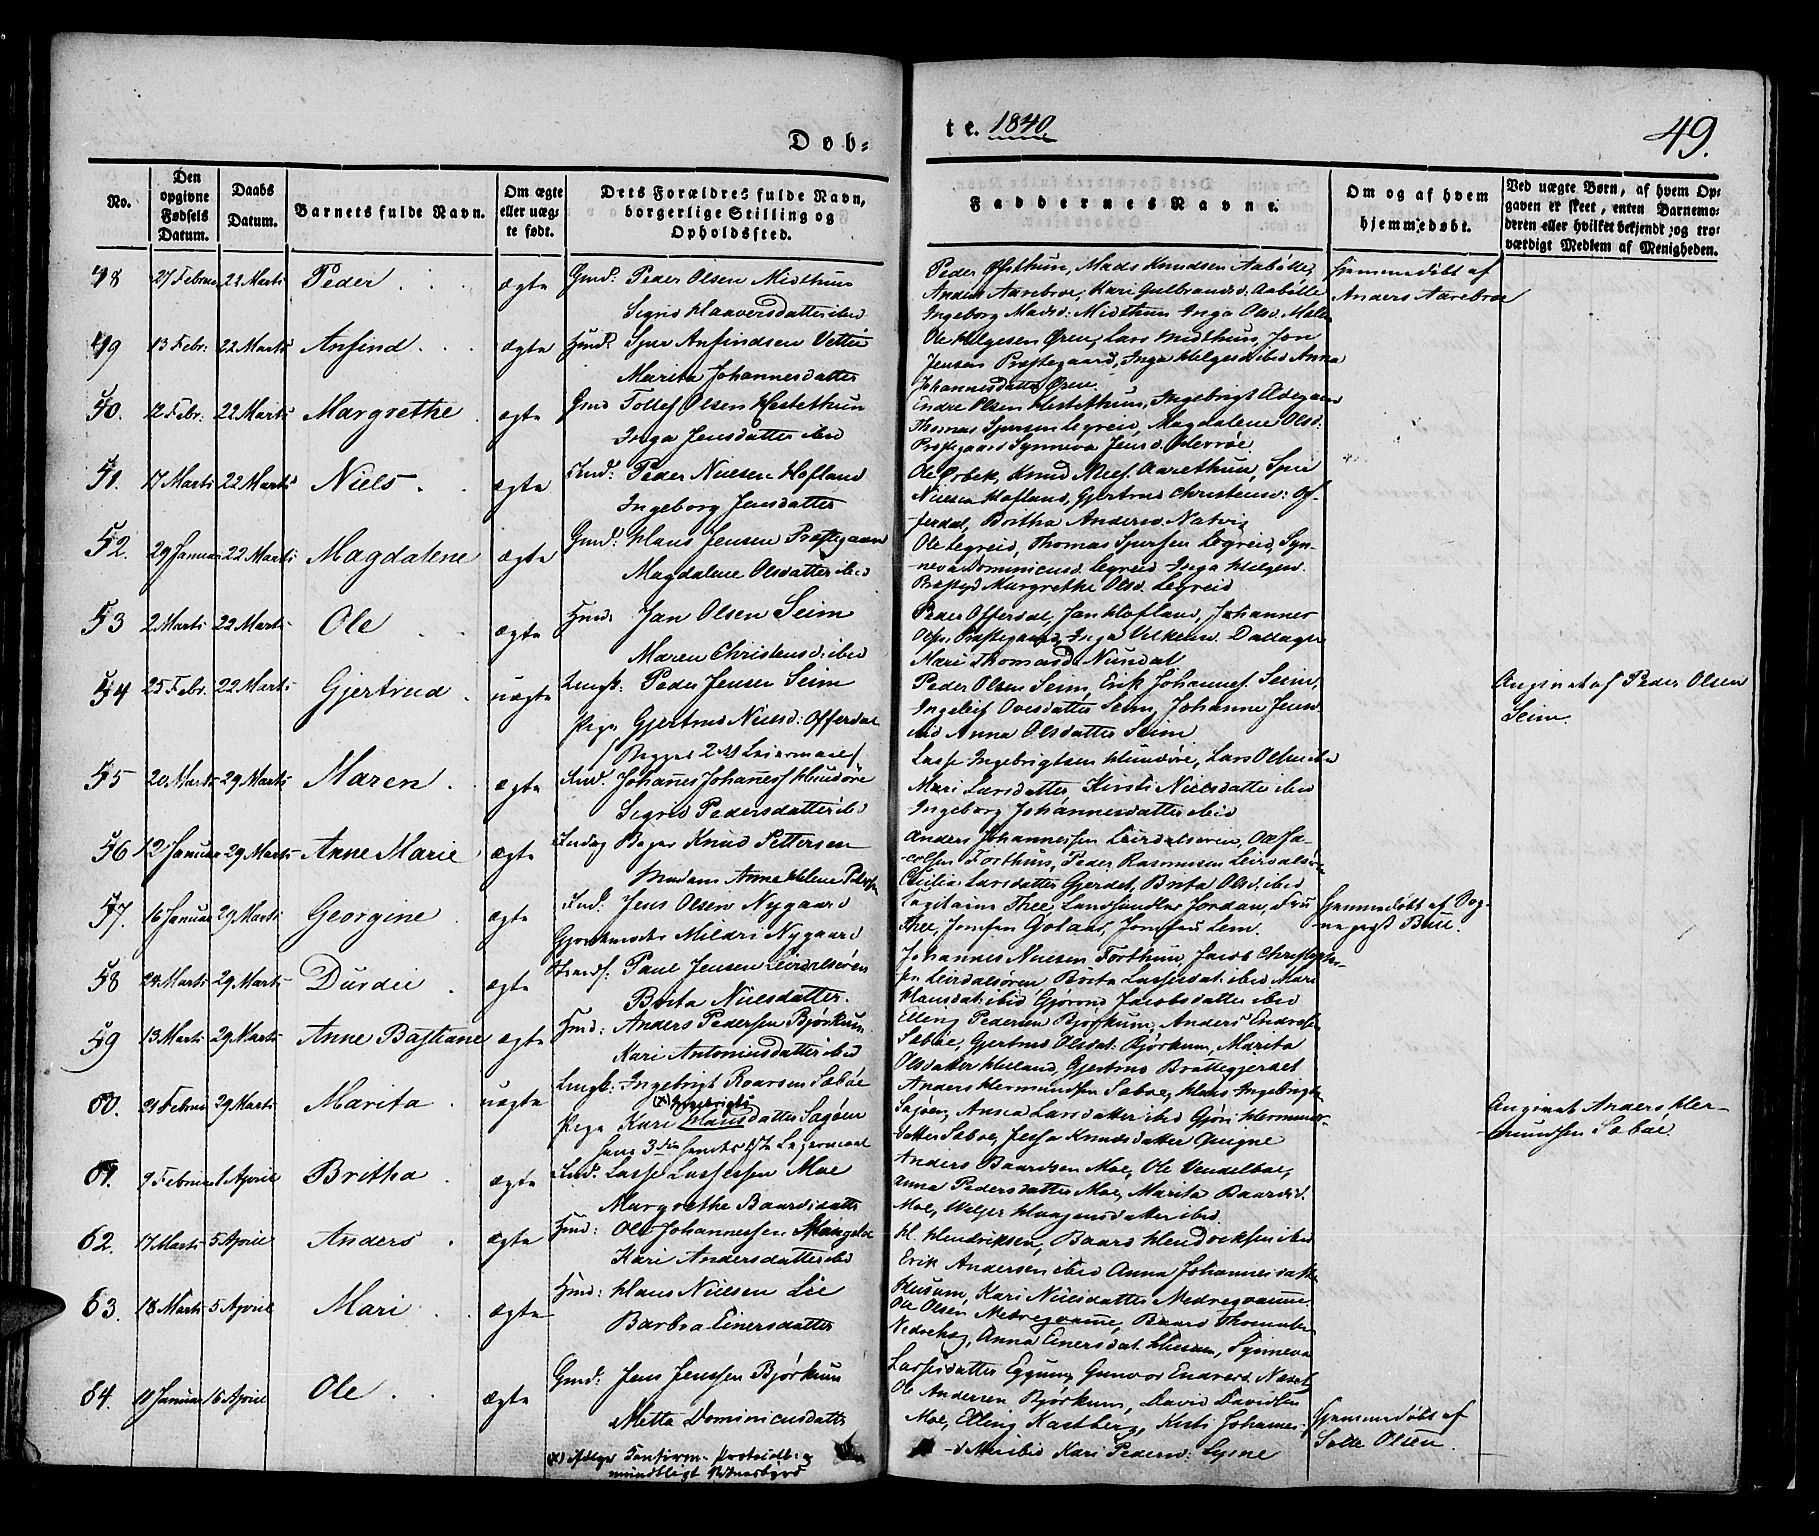 Døb-
te. 1840
49.
No.
Den opgivne Fødsels Datum.
Daabs Datum.
Barnets fulde Navn.
Om ægte eller uægte født.
Dets Forældres fulde Navn, borgerlige Stilling og Opholdssted.
Faddernes Navne.
Om og af hvem hjemmedøbt.
Ved uægte Børn, af hvem Opgaven er skeet, enten Barnemoderen eller hvilket bekjendt og troværdigt Medlem af Menigheden.
48 27 Februar 22 Marts Peder ægte Gmd. Peder Olsen Midthun
Sigrid Haaversdatter ibid
Peder Østhun, Mads Knudsen Aabölle,
Anders Aarebroe, Kari Gulbrandsd. Aabölle
Ingeborg Madsd. Midthun Inga Olsd.
Hjemmedøbt af
Anders Aarebroe
49 13 Febr: 22 Marts Anfind ægte Hmd. Sjur Anfindsen Vettie
Marita Johannesdatter
Ole Helgesen Øren, Lars Midthun, Jon
Jensen Præstegaard, Inga Helgesd. ibid Anna
Johannesdatter Øren.
50. 12 Febr. 22 Marts Margrethe ægte Gmd Tollef Olsen Hestethun
Inga Jensdatter ibid
Endre Olsen Hestethun, Ingebrigt
Thomas Sjursen Legreid, Magdalene Olsd.
Præstegaard Synneva Jensd.
51. 17 Marts 22 Marts Niels ægte Peder Nielsen Hofland
Ingeborg Jensdatter
Ole Ørbek, Knud Aarethun, Sjur
Nielsen Hofland, Gjertrud Christensd: Of-
ferdal, Brithe Andersd. Natvig
52. 29 Januar 22 Marts Magdalene ægte Gmd: Hans Jensen Præstegaard
Magdalene Olsdatter ibid
Ole Legreid, Thomas Sjursen Legreid, Syn-
neva Dominicusd. Legreid Inga Helgesd.
Margrethe Olsd. Legreid
53 2 Marts 22 Marts Ole ægte Hmd: Jan Olsen Seim
Maren Christensd: ibid
Peder Offerdal, Jan Hofland, Johannes
Præstegaard, Inga
Mari Thomasd. Nundal
54 25 Febr. 22 Marts Gjertrud uægte Ungk: Peder Jensen Seim
Pige Gjertrud Nielsd: Offerdal
Begges 2det Leiermaal
Peder Olsen Seim, Erik Seim,
Ingeleif Ovesdatter Seim, Johanne Jensd.
ibid Anna Olsdatter Seim
Angivet af Peder Olsen
Seim.
55 20 Marts 29 Marts Maren ægte
Sigrid Pedersdatter ibid
Lasse Ingebrigtsen Hundøre, Lars Olsen ibid
Mari Larsdatter, Kirsti Nielsdatter ibid
Ingeborg Johannesdatter ibid
56 12 Januar 29 Marts Anne Marie ægte Knud Pettersen
Madam Anne Helene
Anders Johannessen Leirdalsøren, Ole Ja-
cobsen Forthun, Peder Rasmussen Leirdalsør.
Cicilia Larsdatter Gjerdet, Brita Olsd: ibid
57. 16 Januar 29 Marts Georgine ægte Jens Olsen Nygaard
Mildri Nygaard
Capitaine Thee, Landhandler Jordan, Fru
Thee, Jomfru, Jomfru Lem.
Hjemmedøbt af Sog-
nepræst
58 24 Marts 29 Marts Durdei ægte Paul Jensen Leirdalsøren
Brita Nielsdatter.
Johannes Nielsen Forthun, Jacob Christoph-
sen Leirdalsøren Brita Lassesdat: ibid Mari
Hansdat: ibid Gjørond Jacobsdatter ibid
59 13 Marts 29 Marts Anne Bastiane ægte Hmd: Anders Pedersen Bjørkum
Kari Antoniusdatter ibid
Elling Pedersen Bjørkum, Anders Endresen
Sæbøe, Gjertrud Olsdat: Bjørkum, Marita
Olsdatter Hilland, Gjertrud Brattegjerdet
60. 21 Februar 29 Marts Marita uægte Ungk: Ingebrigt Roarsen Sæbøe
(x) Ingebrigts
Pige Kari Hansdatter
hans 3die hendes 1ste Leiermaal
Anders Hermundsen Sæbøe, Hans Ingebrigtsen
Anna Larsdatter ibid Gjøri Hermunds-
datter Sæbøe, Knudsdatter
Angivet Anders Her-
mundsen Sæbøe.
61. 9 Februar 1 April Britha ægte Lasse Lassessen Moe
Margrethe Baardsdatter
Anders Baardsen Moe, Ole Vendelboe,
Anna Pedersdatter Moe, Marita Baardsd.
Moe, Haagensdatter ibid.
62. 17 Marts 5 April Anders ægte Hmd: Ole Johannessen
Kari Andersdatter ibid
H. Hendriksen, Baard Hendriksen ibid
Erik Andersen ibid Anna Johannesdatter
63. 18 Marts 5 April Mari ægte Hmd: Hans Nielsen Lie
Barbra Einersdatter
Husum, Kari Nielsdatter
Ole Olsen Baard
Nedrehag, Anna Einersdat: Husum, Synneva
64. 11 Januar 16 April Ole ægte Gmd: Jens Jenssen Bjørkum
Metta Dominicusdatter
Lassesdatter Eggum, Gunvor Endresd. Næset
Ole Andersen Bjørkum, David Davidsen
Moe, Elling Kastberg, Kirsti Johannes-
datter ibid Kari Pedersd: Lysne
Hjemmedøbt af
Olsen.
(x) ifølge Confirm. Protocoll: og
mundtligt Vidnesbyrd